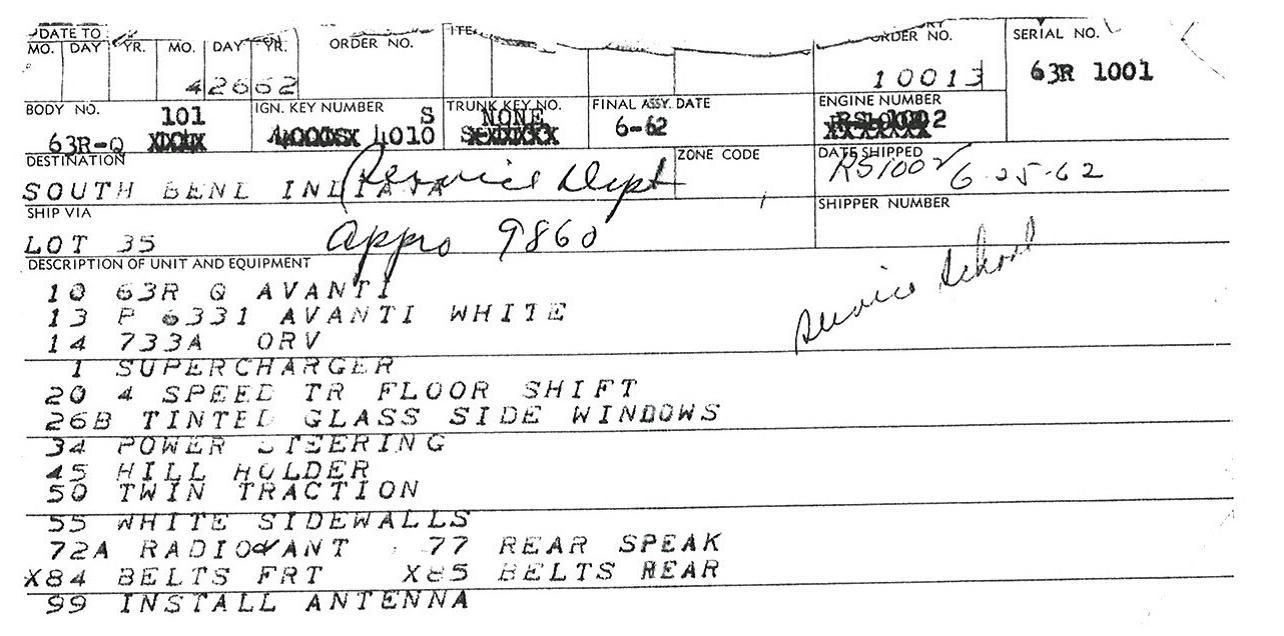 DATE TO
MO. DAY YR. MO. DAY YR. ORDER NO. ITE ORDER NO. SERIAL NO.
42662 10013 63R 1001
BODY NO. IGN. KEY NUMBER TRUNK KEY NO. FINAL ASSY. DATE ENGINE NUMBER
101 S NONE
63R-Q 4010 6-62 2
DESTINATION ZONE CODE DATE SHIPPED
SOUTH BEND INDIANA Service Dept RS1002 6-25-62
SHIP VIA SHIPPER NUMBER
LOT 35 Appro 9860
DESCRIPTION OF UNIT AND EQUIPMENT
Service School
10 63R Q AVANTI
13 P 6331 AVANTI WHITE
14 733A ORV
1 SUPERCHARGER
20 4 SPEED TR FLOOR SHIFT
26B TINTED GLASS SIDE WINDOWS
34 POWER STEERING
45 HILL HOLDER
50 TWIN TRACTION
55 WHITE SIDEWALLS
72A RADIO&ANT 77 REAR SPEAK
X84 BELTS FRT X85 BELTS REAR
99 INSTALL ANTENNA